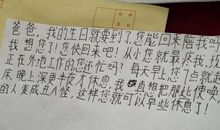 爸爸，我的生日就要到了您能回来陪我吗
我想您了！您快回来吧！从小您就最疼我，找
正在外地工作的您还忙吗？每天早上您
床，晚上深更半夜才休息，我真想把那些使唤
的人变成丑八怪，这样您就可以早些休息了！